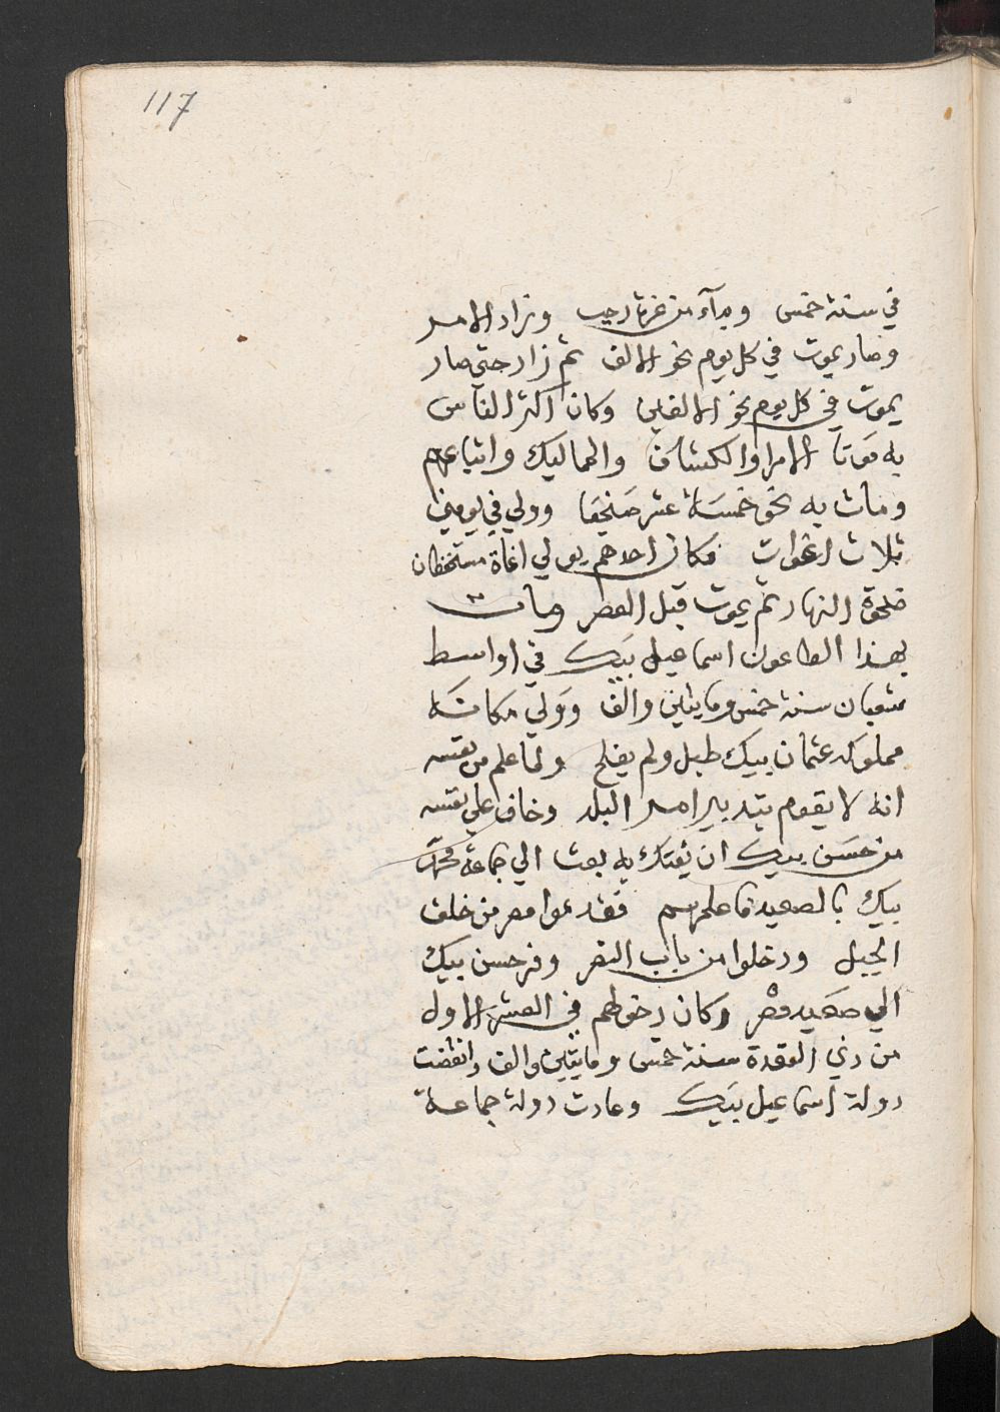 117
في سنة خمس وبدآء من غرة رجب وزاد الامر
وصار يموت في كل يوم نحو الالف ثم زاد حتي صار
يموت في كل يوم نحو الالفين وكان اكثر الناس
به موتا الامرا والكشاف والمماليك واتباعهم
ومات به نحو خمسة عشر صنجقا وولي في يومين
ثلاث اغوات فكان احدهم يولي اغاة مستحفظان
ضحوة النهار ثم يموت قبل العصر ومات
بهذا الطاعون اسماعيل بيك في اواسط
شعبان سنة خمس ومايتين والف وولي مكانه
مملوكه عثمان بيك طبل ولم يفلح ولما علم من نفسه
انه لا يقوم بتدبير امر البلد وخاف علي نفسه
من حسن بيك ان يفتك به بعث الي جماعة محمد
بيك بالصعيد فاعلمهم فقدموا مصر من خلف
الجبل ودخلوا من باب النصر وفر حسن بيك
الي صعيد مصر وكان دخولهم في العشر الاول
من ذي القعدة سنة خمس ومايتين والف وانقضت
دولة اسماعيل بيك وعادت دولة جماعة